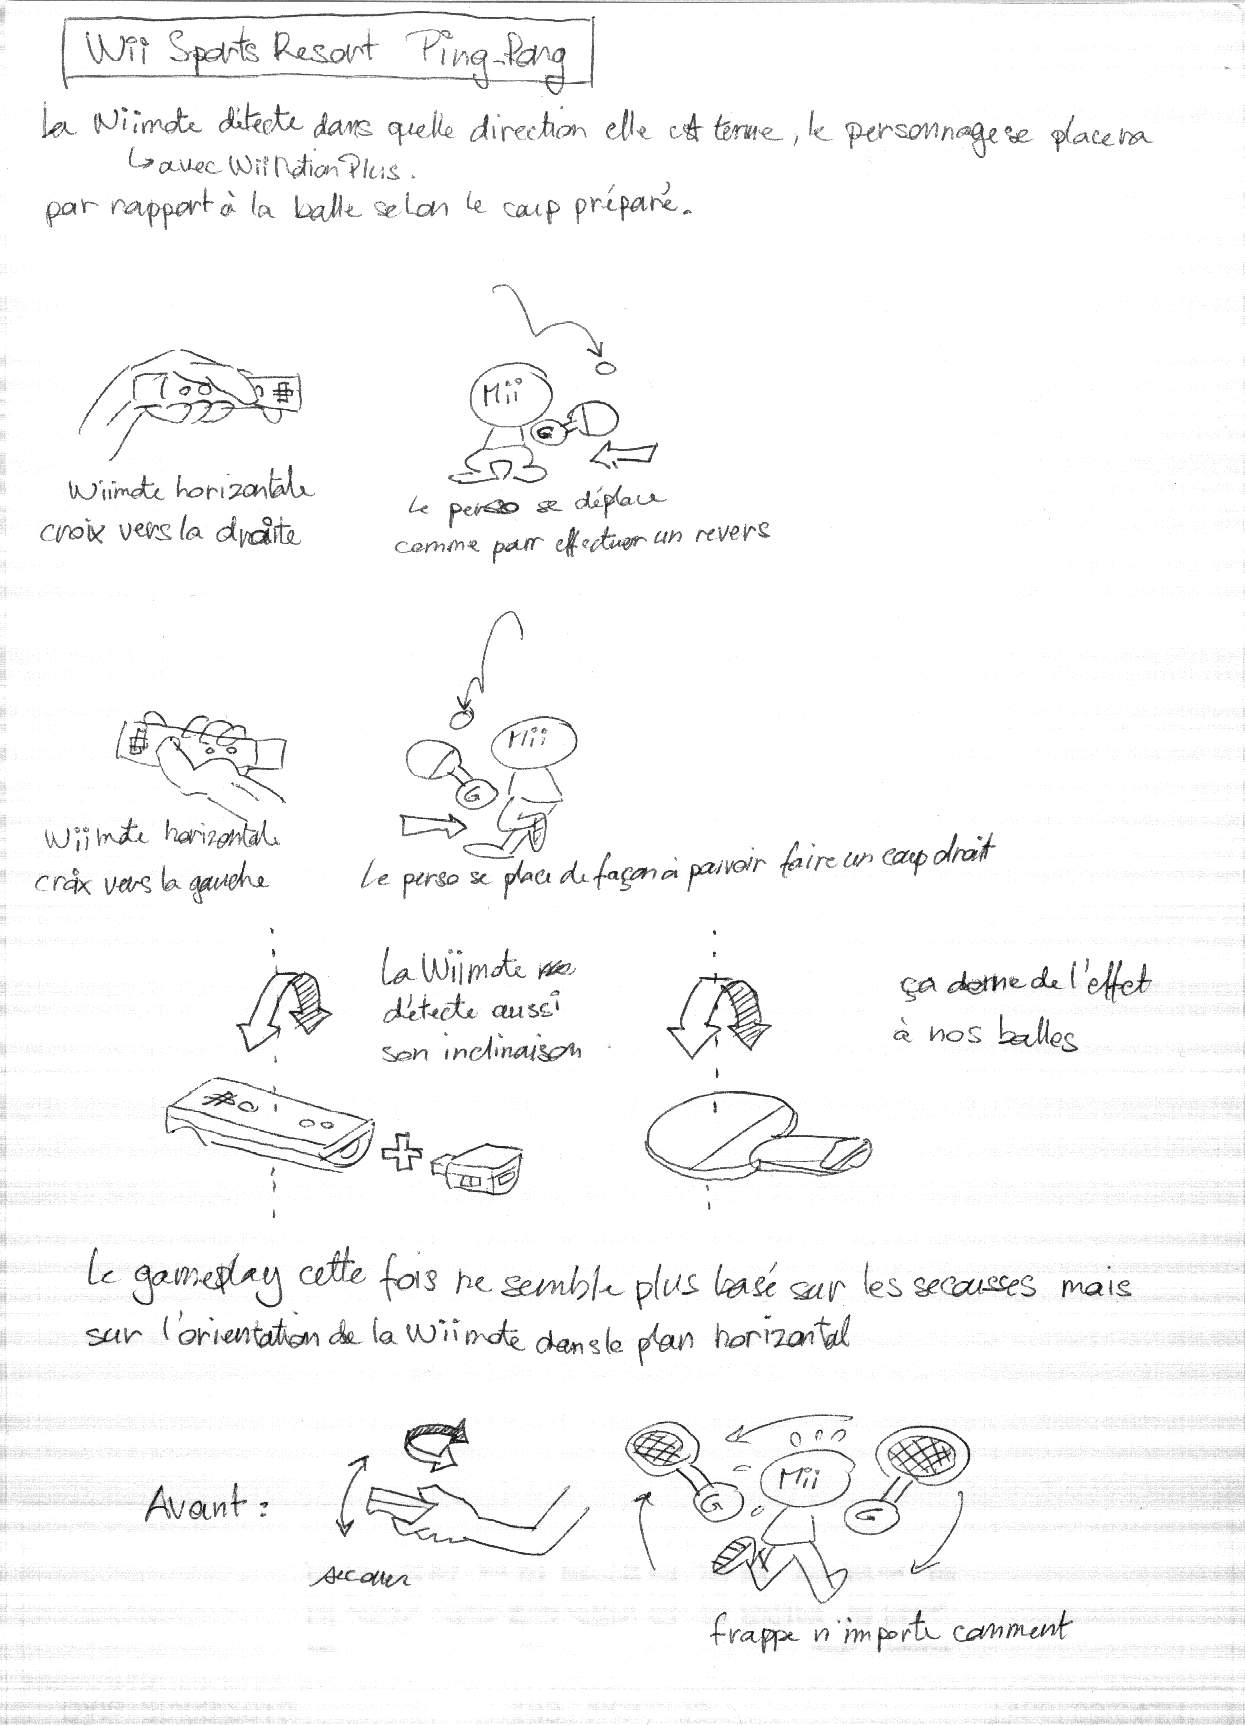 Wii Sports Resort Ping-Pong
La Wiimote détecte dans quelle direction elle est tenue, le personnage se placera
↳ avec Wii Motion Plus.
par rapport à la balle selon le coup préparé.
Mii
G
Wiimote horizontale
croix vers la droite
Le perso se déplace
comme pour effectuer un revers
Mii
G
Wiimote horizontale
croix vers la gauche
Le perso se place de façon à pouvoir faire un coup droit
La Wiimote
détecte aussi
son inclinaison
ça donne de l'effet
à nos balles
Le gameplay cette fois ne semble plus basé sur les secousses mais
sur l'orientation de la Wiimote dans le plan horizontal
Avant :
secouer
Mii
G
G
frappe n'importe comment